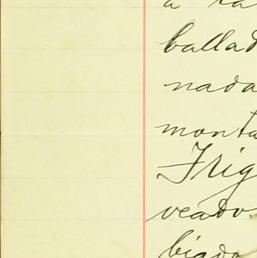 a ra
ballad
nada
monta
Frig
veado
biado